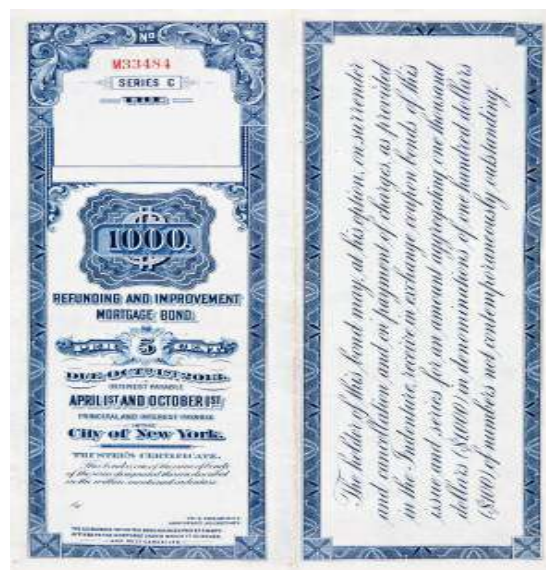 No
M33484
SERIES C
THE
1000.
REFUNDING AND IMPROVEMENT
MORTGAGE BOND.
PER 5 CENT.
DUE OCT. 1ST 2013.
INTEREST PAYABLE
APRIL 1ST AND OCTOBER 1ST.
PRINCIPAL AND INTEREST PAYABLE
IN THE
City of New York.
TRUSTEE'S CERTIFICATE.
This bond is one of the series of bonds
of the series designated therein described
in the within mentioned indenture.
by
The holder of this bond may, at his option, on surrender
and cancellation and on payment of charges, as provided
in the Indenture, receive in exchange coupon bonds of this
issue and series for an amount aggregating one thousand
dollars $1,000 in denominations of one hundred dollars
($100) of numbers not contemporaneously outstanding.